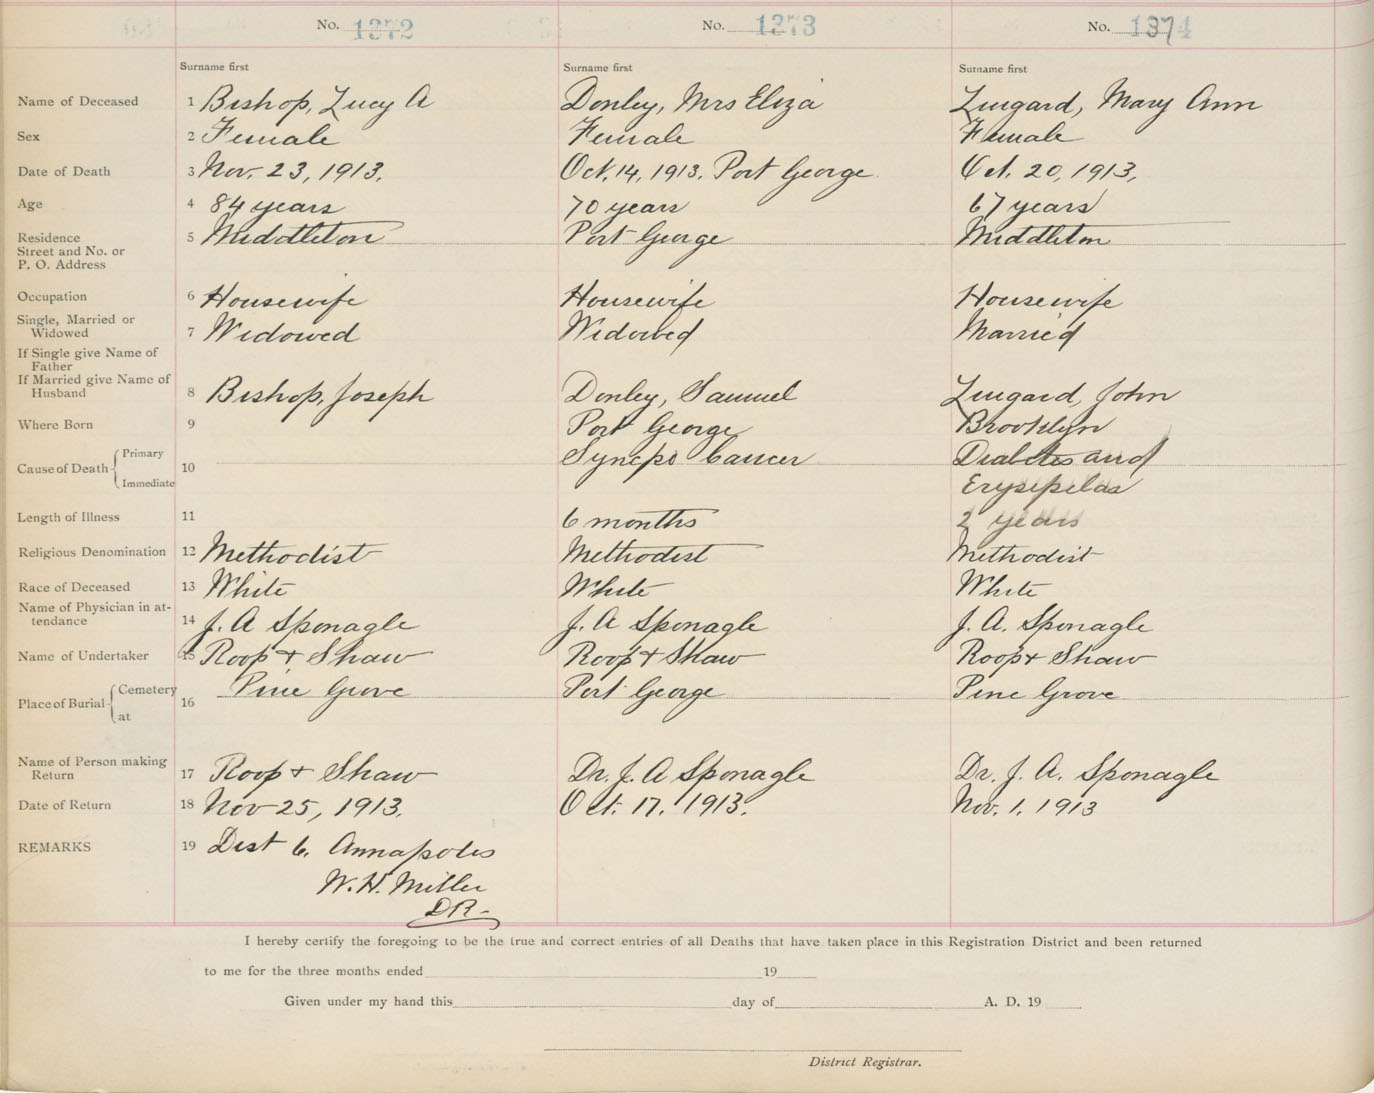 No. 1372 No. 1373 No. 1374
Surname first Surname first Surname first
Name of Deceased 1 Bishop, Lucy A Donley, Mrs Eliza Lingard, Mary Ann
Sex 2 Female Female Female
Date of Death 3 Nov. 23, 1913. Oct. 14, 1913. Port George Oct. 20, 1913,
Age 4 84 years 70 years 67 years
Residence Street and No. or P. O. Address 5 Middleton Port George Middleton
Occupation 6 Housewife Housewife Housewife
Single, Married or Widowed 7 Widowed Widowed Married
If Single give Name of Father
If Married give Name of Husband 8 Bishop, Joseph Donley, Samuel Lingard, John
Where Born 9 Port George Brooklyn
Cause of Death Primary Immediate 10 Syncpo Cancer Diabetes and
Erysipelas
Length of Illness 11 6 months 2 years
Religious Denomination 12 Methodist Methodist Methodist
Race of Deceased 13 White White White
Name of Physician in attendance 14 J. A Sponagle J. A Sponagle J. A. Sponagle
Name of Undertaker 15 Roop + Shaw Roop + Shaw Roop + Shaw
Place of Burial Cemetery at 16 Pine Grove Port George Pine Grove
Name of Person making Return 17 Roop + Shaw Dr. J. A Sponagle Dr. J. A. Sponagle
Date of Return 18 Nov 25, 1913. Oct. 17, 1913. Nov. 1. 1913
REMARKS 19 Dist 6. Annapolis
W. H. Miller
DR-
I hereby certify the foregoing to be the true and correct entries of all Deaths that have taken place in this Registration District and been returned
to me for the three months ended 19
Given under my hand this day of A. D. 19
District Registrar.